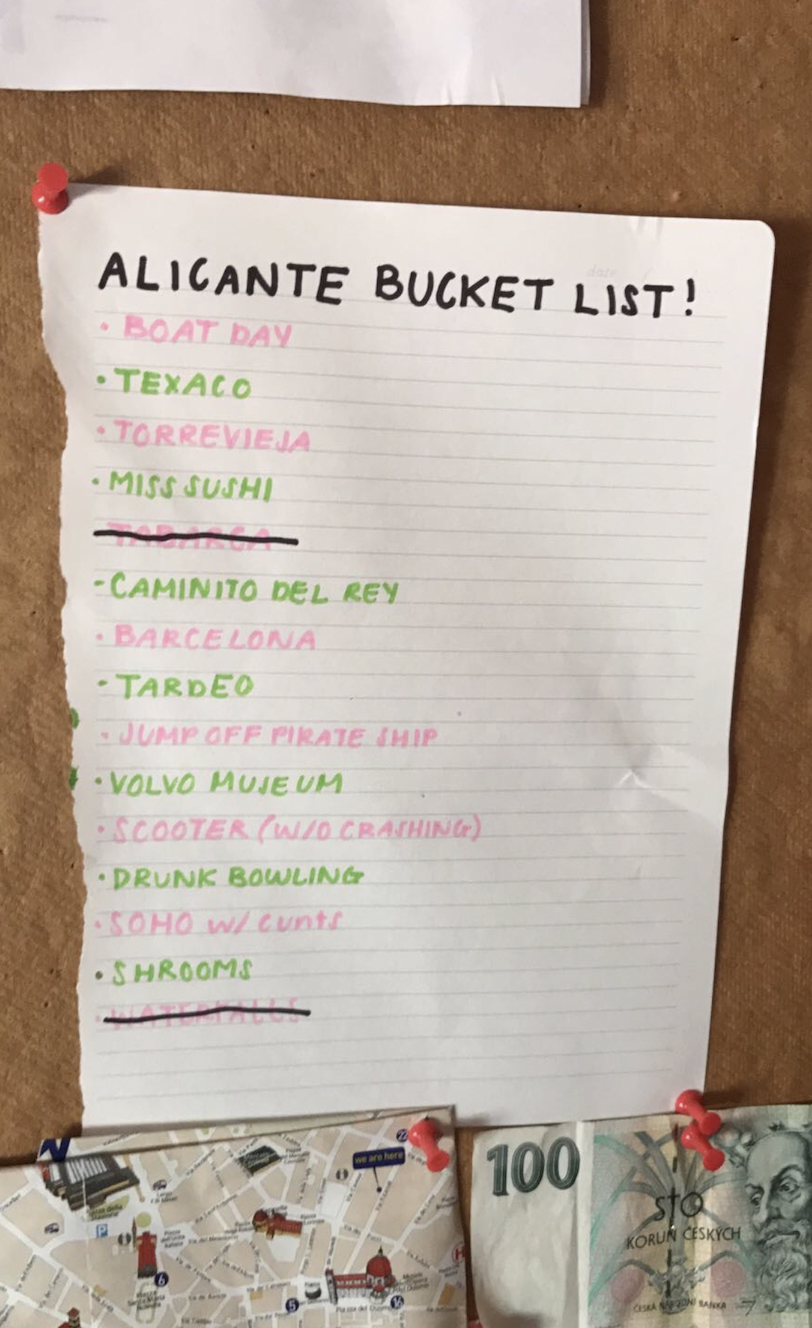 ALICANTE BUCKET LIST!
• BOAT DAY
• TEXACO
• TORREVIEJA
• MISS SUSHI
TABARCA
- CAMINITO DEL REY
• BARCELONA
• TARDEO
• JUMP OFF PIRATE SHIP
• VOLVO MUSEUM
• SCOOTER (W/O CRASHING)
• DRUNK BOWLING
• SOHO w/ cunts
• SHROOMS
• WATERFALLS
we are here
6
5
16
100
STO
KORUN ČESKÝCH
ČESKÁ NÁRODNÍ BANKA